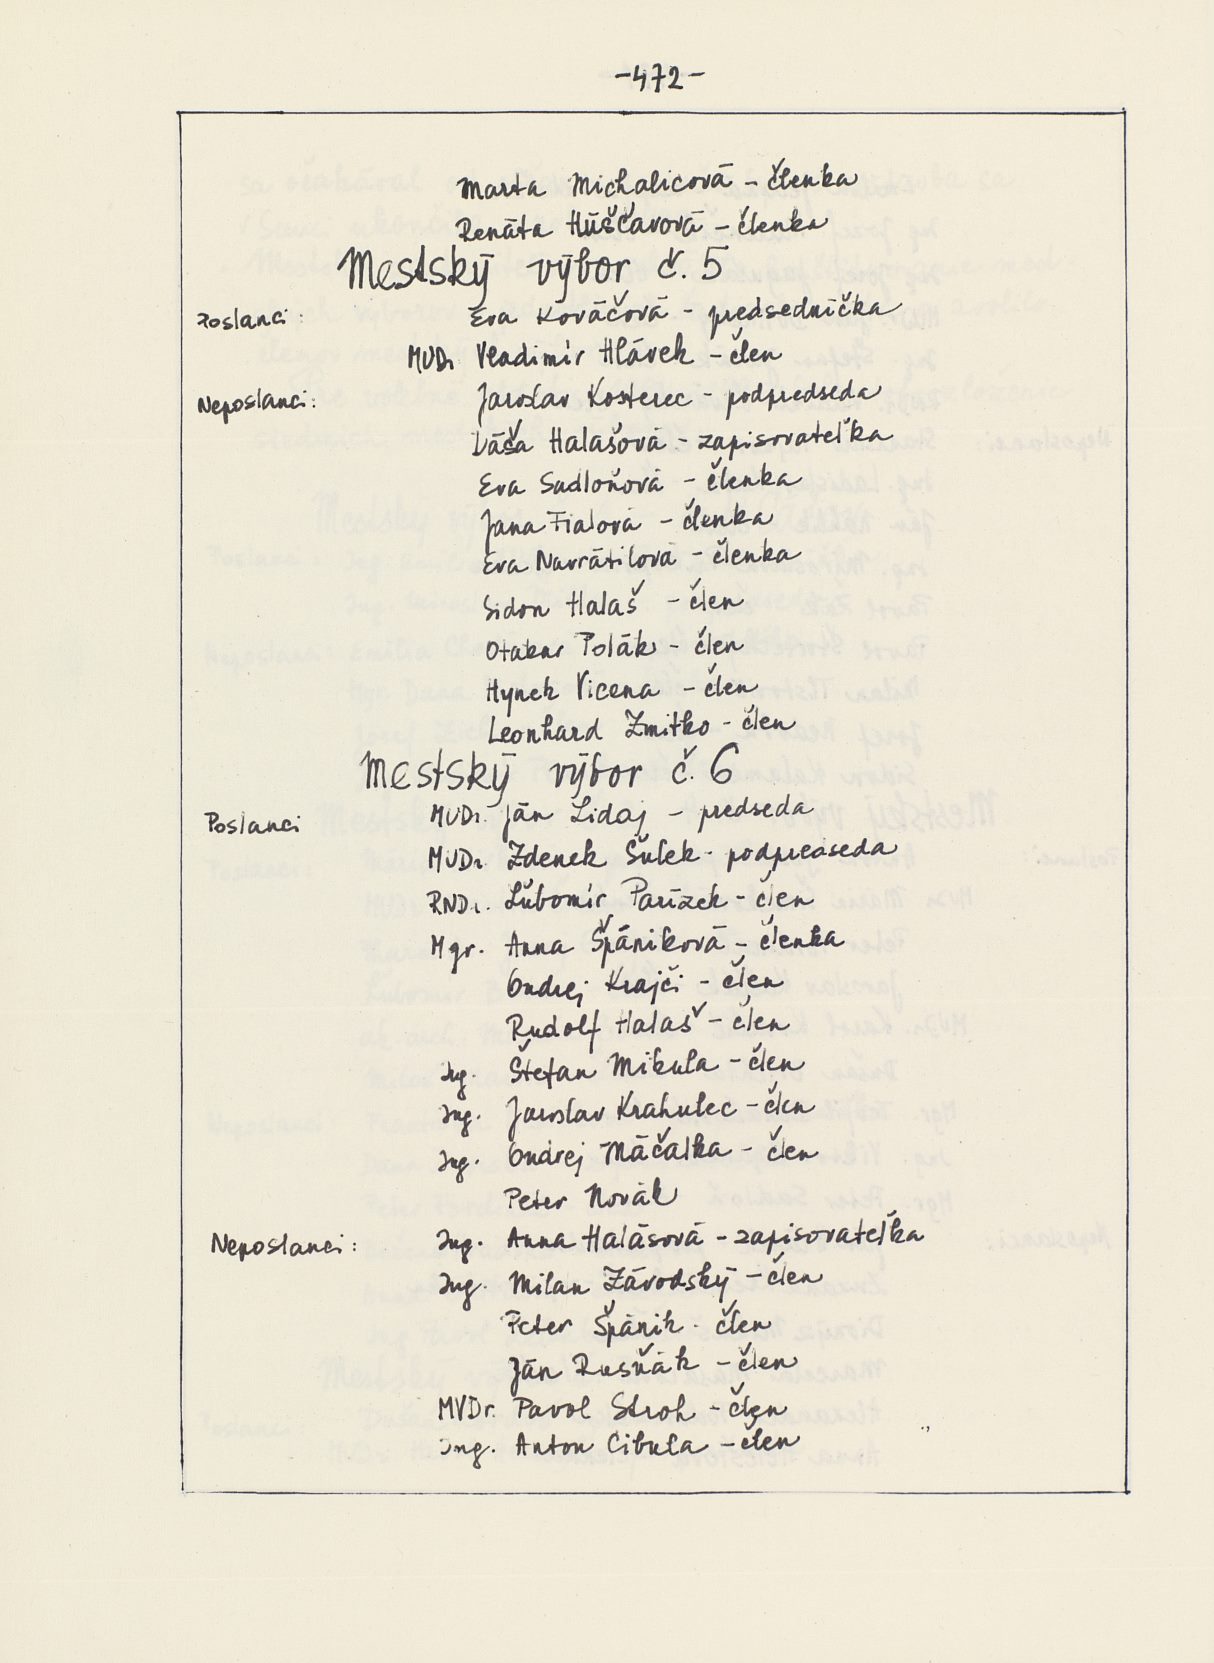 -472-
Marta Michalicová - členka
Renáta Húščavová - členka
Mestský výbor č. 5
Poslanci: Eva Kováčová - predsedníčka
MUDr. Vladimír Hlávek - člen
Neposlanci: Jaroslav Kosterec - podpredseda
Dáša Halašová - zapisovateľka
Eva Sadloňová - členka
Jana Fialová - členka
Eva Navrátilová - členka
Sidon Halaš - člen
Otakar Polák - člen
Hynek Vicena - člen
Leonhard Zmitko - člen
Mestský výbor č. 6
Poslanci MUDr. Ján Lidaj - predseda
MUDr. Zdenek Šulek - podpredseda
RNDr. Ľubomír Parízek - člen
Mgr. Anna Špániková - členka
Ondrej Krajči - člen
Rudolf Halaš - člen
Ing. Štefan Mikula - člen
Ing. Jaroslav Krahulec - člen
Ing. Ondrej Máčalka - člen
Peter Novák
Neposlanci: Ing. Anna Halásová - zapisovateľka
Ing. Milan Závodský - člen
Peter Špánik - člen
Ján Rusňák - člen
MVDr. Pavol Stroh - člen
Ing. Anton Cibula - člen